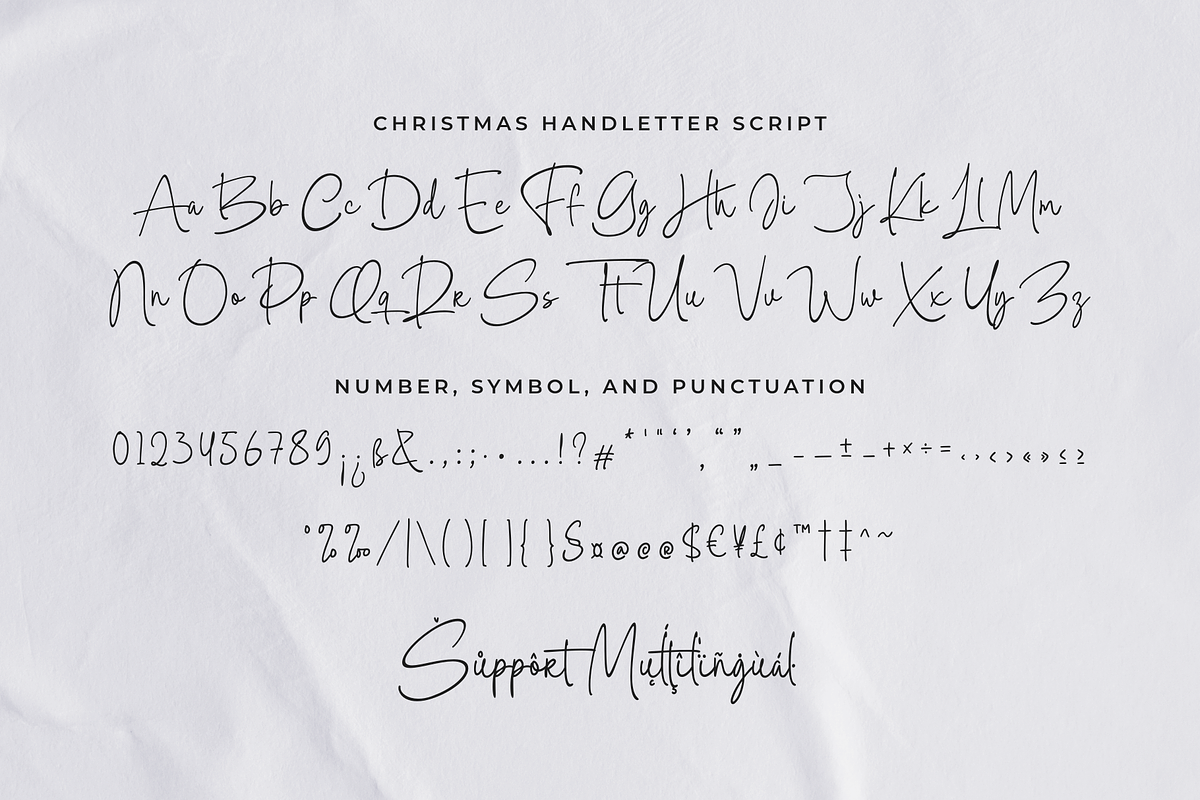 CHRISTMAS HANDLETTER SCRIPT
Aa Bb Cc Dd Ee Ff Gg Hh Ii Jj Kk Ll Mm
Nn Oo Pp Qq Rr Ss Tt Uu Vv Ww Xx Yy Zz
NUMBER, SYMBOL, AND PUNCTUATION
0123456789¡¿ß&.,:;·•…!?#*'"‘’‚“”„_-–—±_+×÷=‹›<>«»≤≥
°%‰/|\()[]{}§¤@$€¥£¢™†‡^~